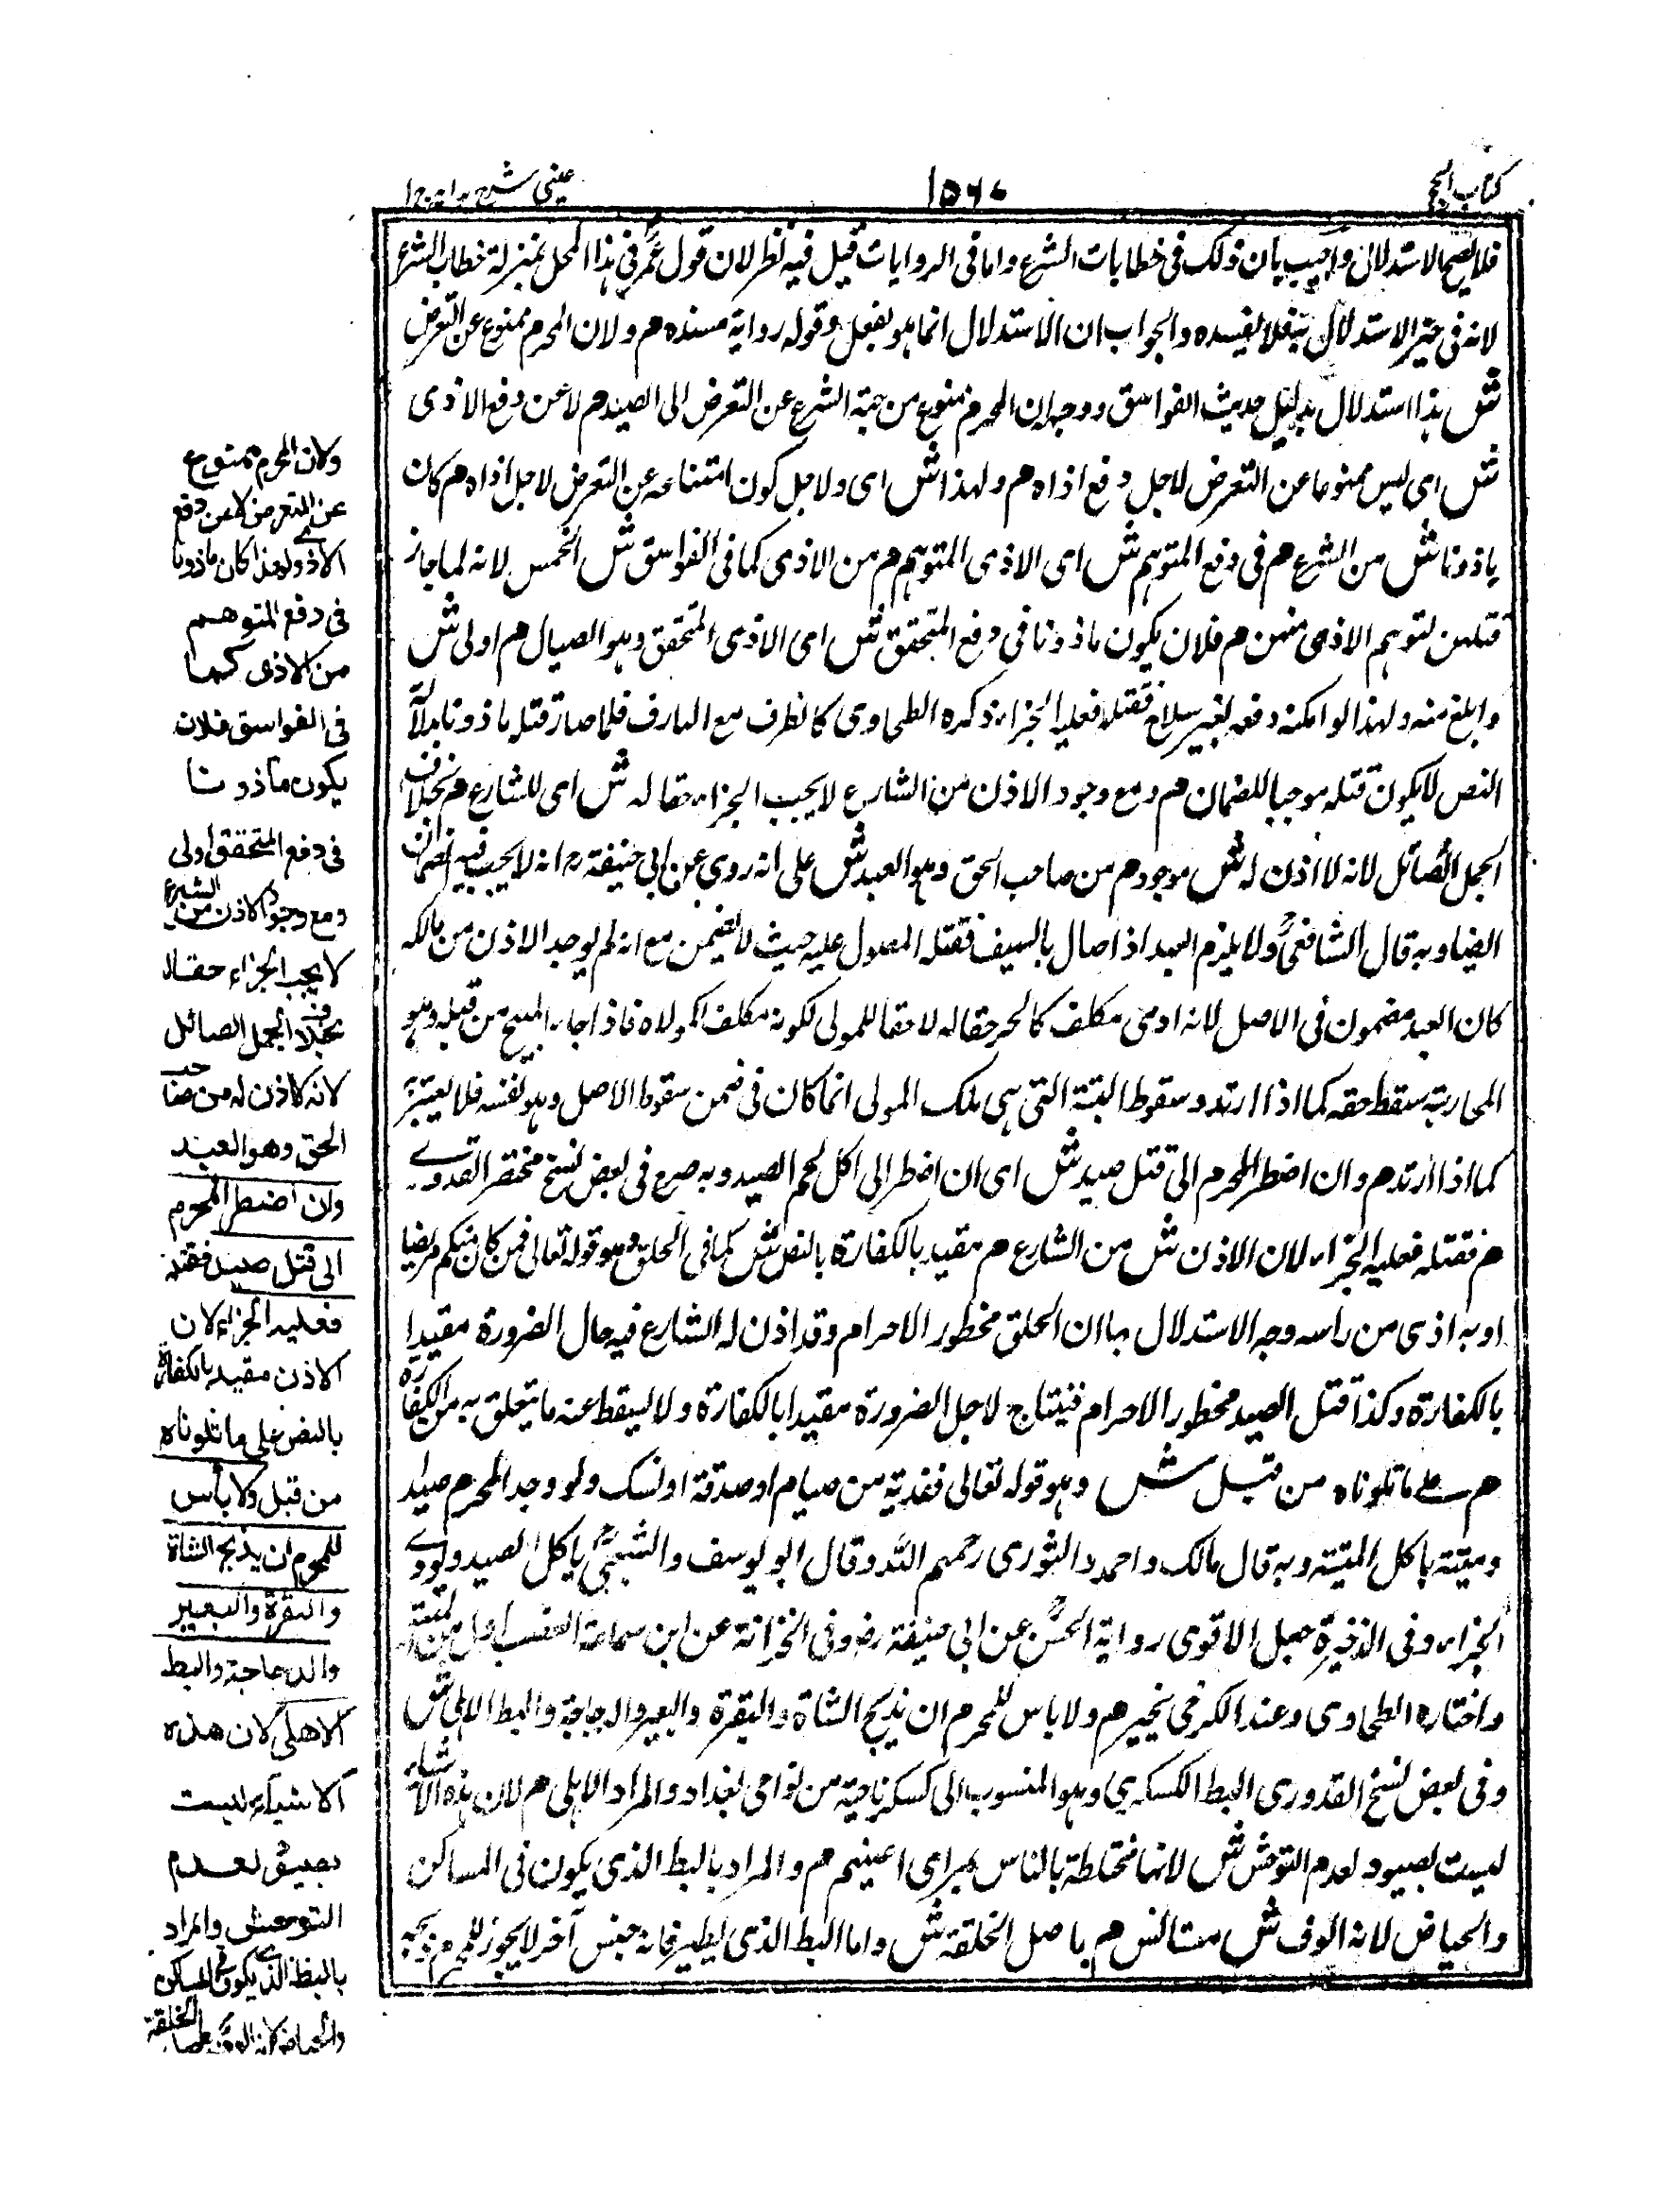 كتاب الحج
١٥٦٠
عينى شرح هدايه ج ١
فلا يصح الاستدلال واجيب بان ذلك فى خطابات الشرع واما فى الروايات قيل فيه نظر لان قول عمر فى هذا المحل بمنزلة خطاب الشرع
لانه فى حيز الاستدلال بفلا يفيده والجواب ان الاستدلال انما هو بفعل وقوله رواية مسنده هم ولان المحرم ممنوع عن التعرض
ش هذا استدلال بدليل حديث الفواسق ووجهه ان المحرم ممنوع من جهة الشرع عن التعرض الى الصيد هم لا عن دفع الاذى
ش اى ليس ممنوعا عن التعرض لاجل دفع اذاه هم ولهذا ش اى ولاجل كون امتناعه عن التعرض لاجل اذاه هم كان
ماذونا ش من الشرع هم فى دفع المتوهم ش اى الاذى المتوهم هم من الاذى كما فى الفواسق ش الخمس لانه لما جاز
قتلهن لتوهم الاذى منهن هم فلان يكون ماذونا فى دفع المتحقق ش اى الاذى المتحقق وهو الصيال هم اولى ش
وابلغ منه ولهذا لو امكنه دفعه بغير سلاح فقتله فعليه الجزاء ذكره الطحاوى كالطرف مع الهارف فلما صار قتله ماذونا بدلالة
النص لا يكون قتله موجبا للضمان هم ومع وجود الاذن من الشارع لا يجب الجزاء حقا له ش اى للشارع هم بخلاف
الجمل الصائل لانه لا اذن له ش موجود هم من صاحب الحق وهو العبد ش على انه روى عن ابى حنيفة رح انه لا يجب فيه الضمان
ايضا وبه قال الشافعى ولا يلزم العبد اذا صال بالسيف فقتله المصول عليه حيث لا يضمن مع انه لم يوجد الاذن من مالكه
كان العبد مضمون فى الاصل لانه ادمى مكلف كالحر حقا له لا حقا للمولى لكونه مكلفا كمولاه فاذا جاء المبيح من قبله وهو
المحاربة سقط حقه كما اذا ارتد وسقوط البتة التى هى ملك المولى انما كان فى ضمن سقوط الاصل وهو نفسه فلا يعتبر
كما اذا ارتد هم وان اضطر المحرم الى قتل صيد ش اى ان اضطر الى اكل لحم الصيد وبه صرح فى بعض نسخ مختصر القدورى
هم فقتله فعليه الجزاء لان الاذن ش من الشارع هم مقيد بالكفارة بالنص ش كما فى الحلق وهو قوله تعالى فمن كان منكم مريضا
او به اذى من راسه وجه الاستدلال بها ان الحلق محظور الاحرام وقد اذن له الشارع فيه حال الضرورة مقيدا
بالكفارة وكذا قتل الصيد محظور الاحرام فيحتاج لاجل الضرورة مقيدا بالكفارة ولا يسقط عنه ما يتعلق به من الكفارة
هم على ما تلوناه من قبل ش وهو قوله تعالى ففدية من صيام او صدقة او نسك ولو وجد المحرم صيدا
وميتة ياكل الميتة وبه قال مالك واحمد والثورى رحمهم الله وقال ابو يوسف والشعبى ياكل الصيد ويؤدى
الجزاء وفى الذخيرة جعل الاقوى رواية الحسن عن ابى حنيفة رض وفى الخزانة عن ابن سماعة الغصب اولى من الميتة
واختاره الطحاوى وعند الكرخى يخير هم ولا باس للمحرم ان يذبح الشاة والبقرة والبعير والدجاجة والبط الاهلى ش
وفى بعض نسخ القدورى البط الكسكرى وهو المنسوب الى كسكر ناحية من نواحى بغداد والمراد الاهلى هم لان هذه الاشياء
ليست بصيود لعدم التوحش ش لانها مختلطة بالناس بمراى اعينهم هم والمراد بالبط الذى يكون فى المساكن
والحياض لانه الوف ش مستانس هم باصل الخلقة ش واما البط الذى يطير فانه جنس آخر لا يجوز للمحرم ذبحه
ولان المحرم ممنوع
عن التعرض لا عن دفع
الاذى ولهذا كان ماذونا
فى دفع المتوهم
من الاذى كما
فى الفواسق فلان
يكون ماذونا
فى دفع المتحقق اولى
ومع وجود الاذن من الشرع
لا يجب الجزاء حقا له
بخلاف الجمل الصائل
لانه لا اذن له من صاحب
الحق وهو العبد
وان اضطر المحرم
الى قتل صيد فقتله
فعليه الجزاء لان
الاذن مقيد بالكفارة
بالنص على ما تلوناه
من قبل ولا بأس
للمحرم ان يذبح الشاة
والبقرة والبعير
والدجاجة والبط
الاهلى لان هذه
الاشياء ليست
بصيود لعدم
التوحش والمراد
بالبط الذى يكون فى المساكن
والحياض لانه الوف باصل الخلقة